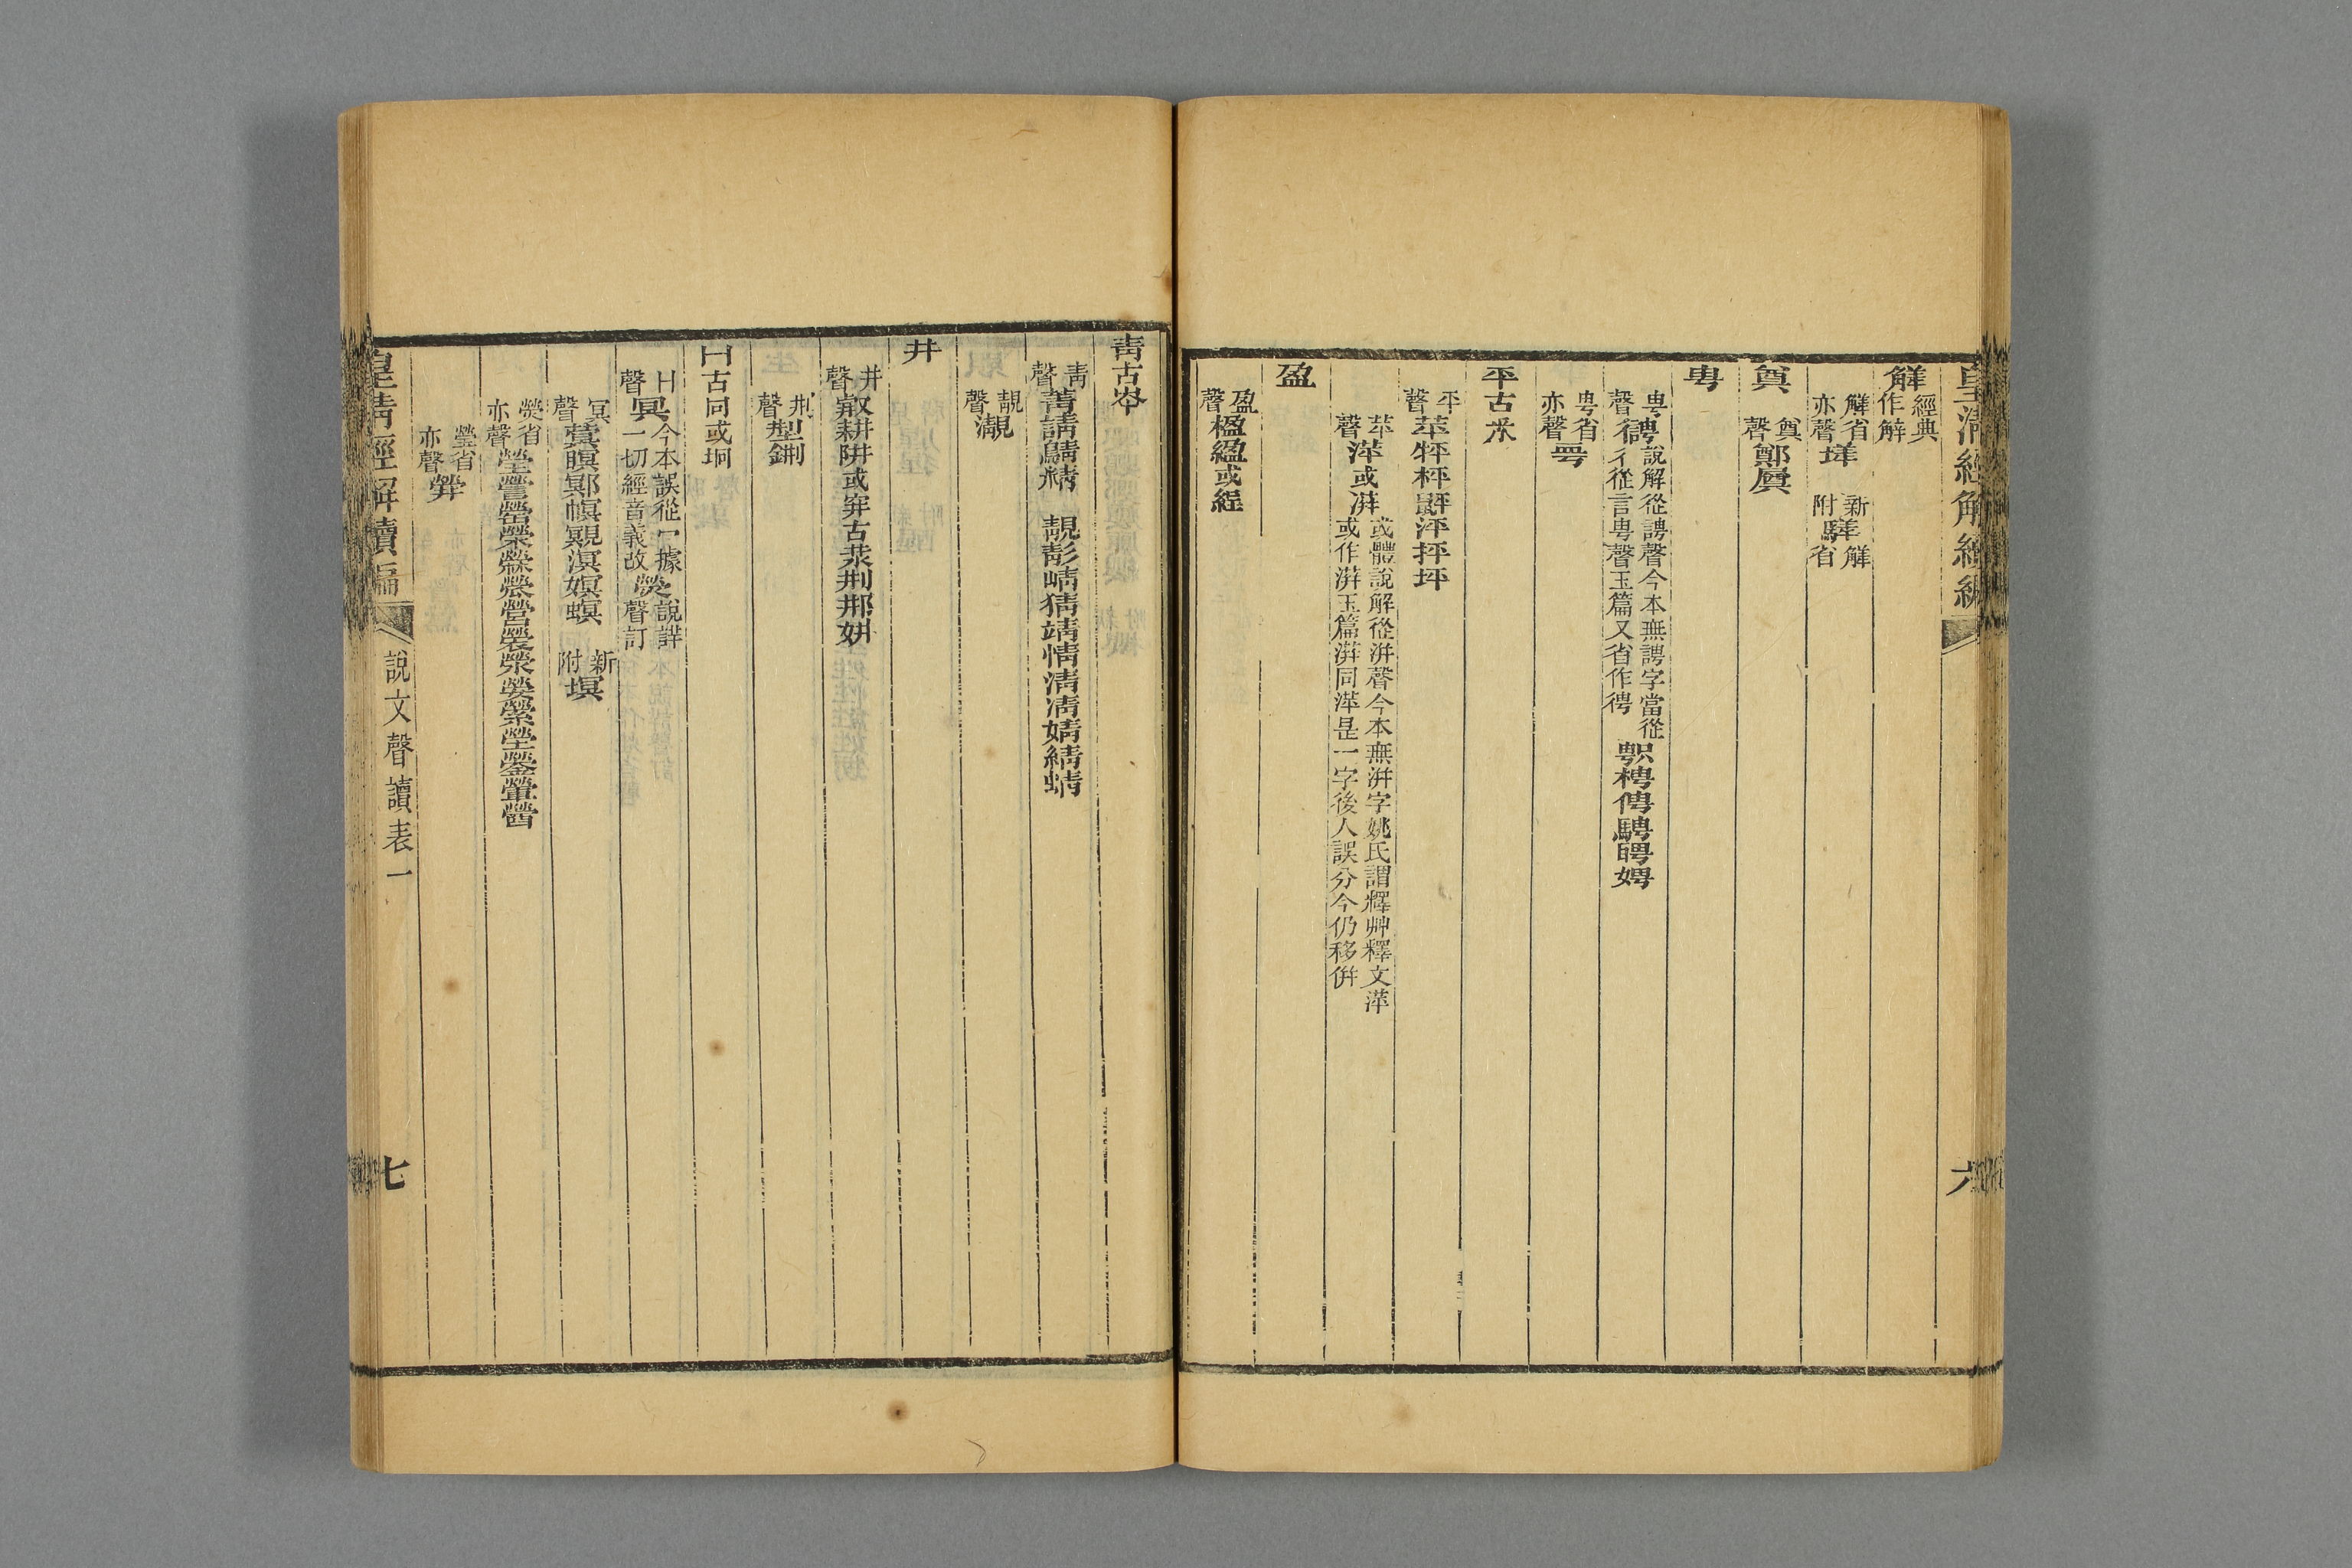 皇清經解續編
觲經典作解
觲省亦聲垟 新附騂觲省
奠
奠聲鄭㞟
甹
甹聲德說解從謣聲今本無謣字當從彳從言甹聲玉篇又省作德䚍梬俜騁聘娉
甹省亦聲甼
平古釆
平聲苹抨枰鼥泙抨坪
苹聲萍或洴或體說解從洴聲今本無洴字姚氏謂釋艸釋文萍或作蓱玉篇蓱同萍是一字後人誤分今仍移併
盈
盈聲楹縕或經
六
靑古岑
靑聲菁請鶄精 靚彭崝猜靖情淸凊婧綪蜻
靚聲瀞
井
井聲㓝耕阱或穽古汬刑邢妌
刑聲型鉶
冂古冋或坰
冂聲㝠今本誤從冖據一切經音義改熒說詳聲訂
冥聲蓂瞑鄍幎覭溟嫇螟 新附塓
熒省亦聲瑩營罃榮禜褮營裳滎嫈縈塋鎣 ​醟
瑩省亦聲甇
皇清經解續編 說文聲讀表一
七